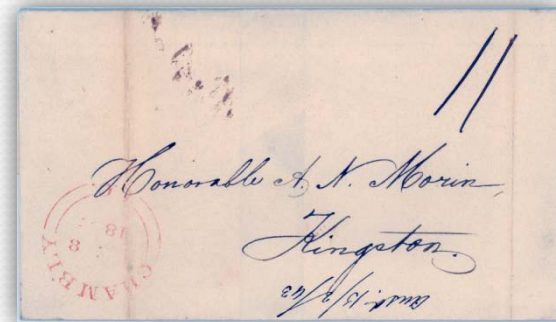 11
Honorable A. N. Morin,
Kingston.
CHAMBLY
8
18